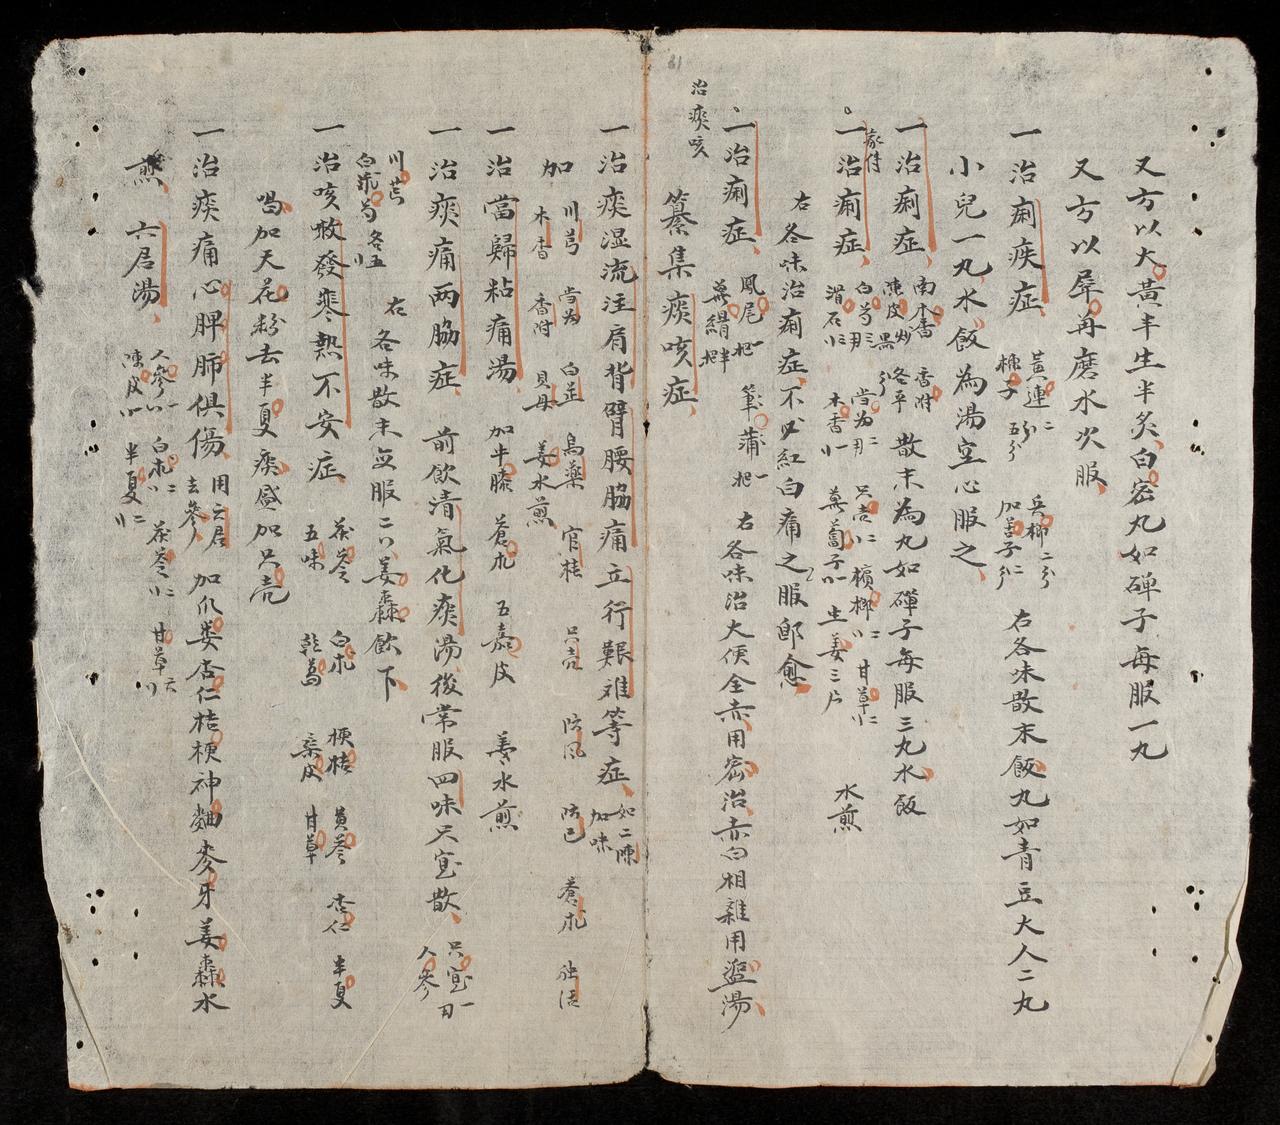 又方以大黃半生半炙白宻丸如磾子每服一丸
又方以犀再磨水次服
一治痢疾症 黃連二分 檳子五分 兵榔二分 加善子仁 右各味散末飯丸如青豆大人二丸
小兒一丸水飯為湯空心服之
一治痢症 南木香 陳皮炒黑 香附 各平 散末為丸如磾子每服三丸水飯
家傳
一治痢症 白芍 滑石 当为 木香 只壳 萊菔子 檳榔 生姜三片 甘草 水煎
右各味治痢症不必紅白痛之服即愈
一治痢症 鳳尾一把 萆絹半把 筆蒲一把 右各味治大便全赤用密治赤白相雜用塩湯
治痰咳
纂集痰咳症
一治痰湿流注肩背臂腰脇痛立行艱难等症 如二陳加味
加 川芎 当为 白芷 烏藥 官桂 只壳 防風 防已 蒼朮 独活
木香 香附 貝母 姜水煎
一治當歸粘痛湯 加牛膝 蒼朮 五嘉皮 姜水煎
一治痰痛两脇症 前飲清氣化痰湯後常服四味只宜散 只宜一刀 人參
川芎 白芍 各五 右各味散末每服二 姜棗飲下
一治咳嗽發寒熱不安症 茯苓 白朮 梗桔 黄芩 杏仁 半夏
五味 乾葛 桒皮 甘草
喝加天花粉去半夏痰盛加只壳
一治痰痛心脾肺俱傷 用六君去參 加瓜蒌杏仁桔梗神麯麥牙姜棗水
煎 六君湯 人參 陳皮 白朮 半夏 茯苓 甘草